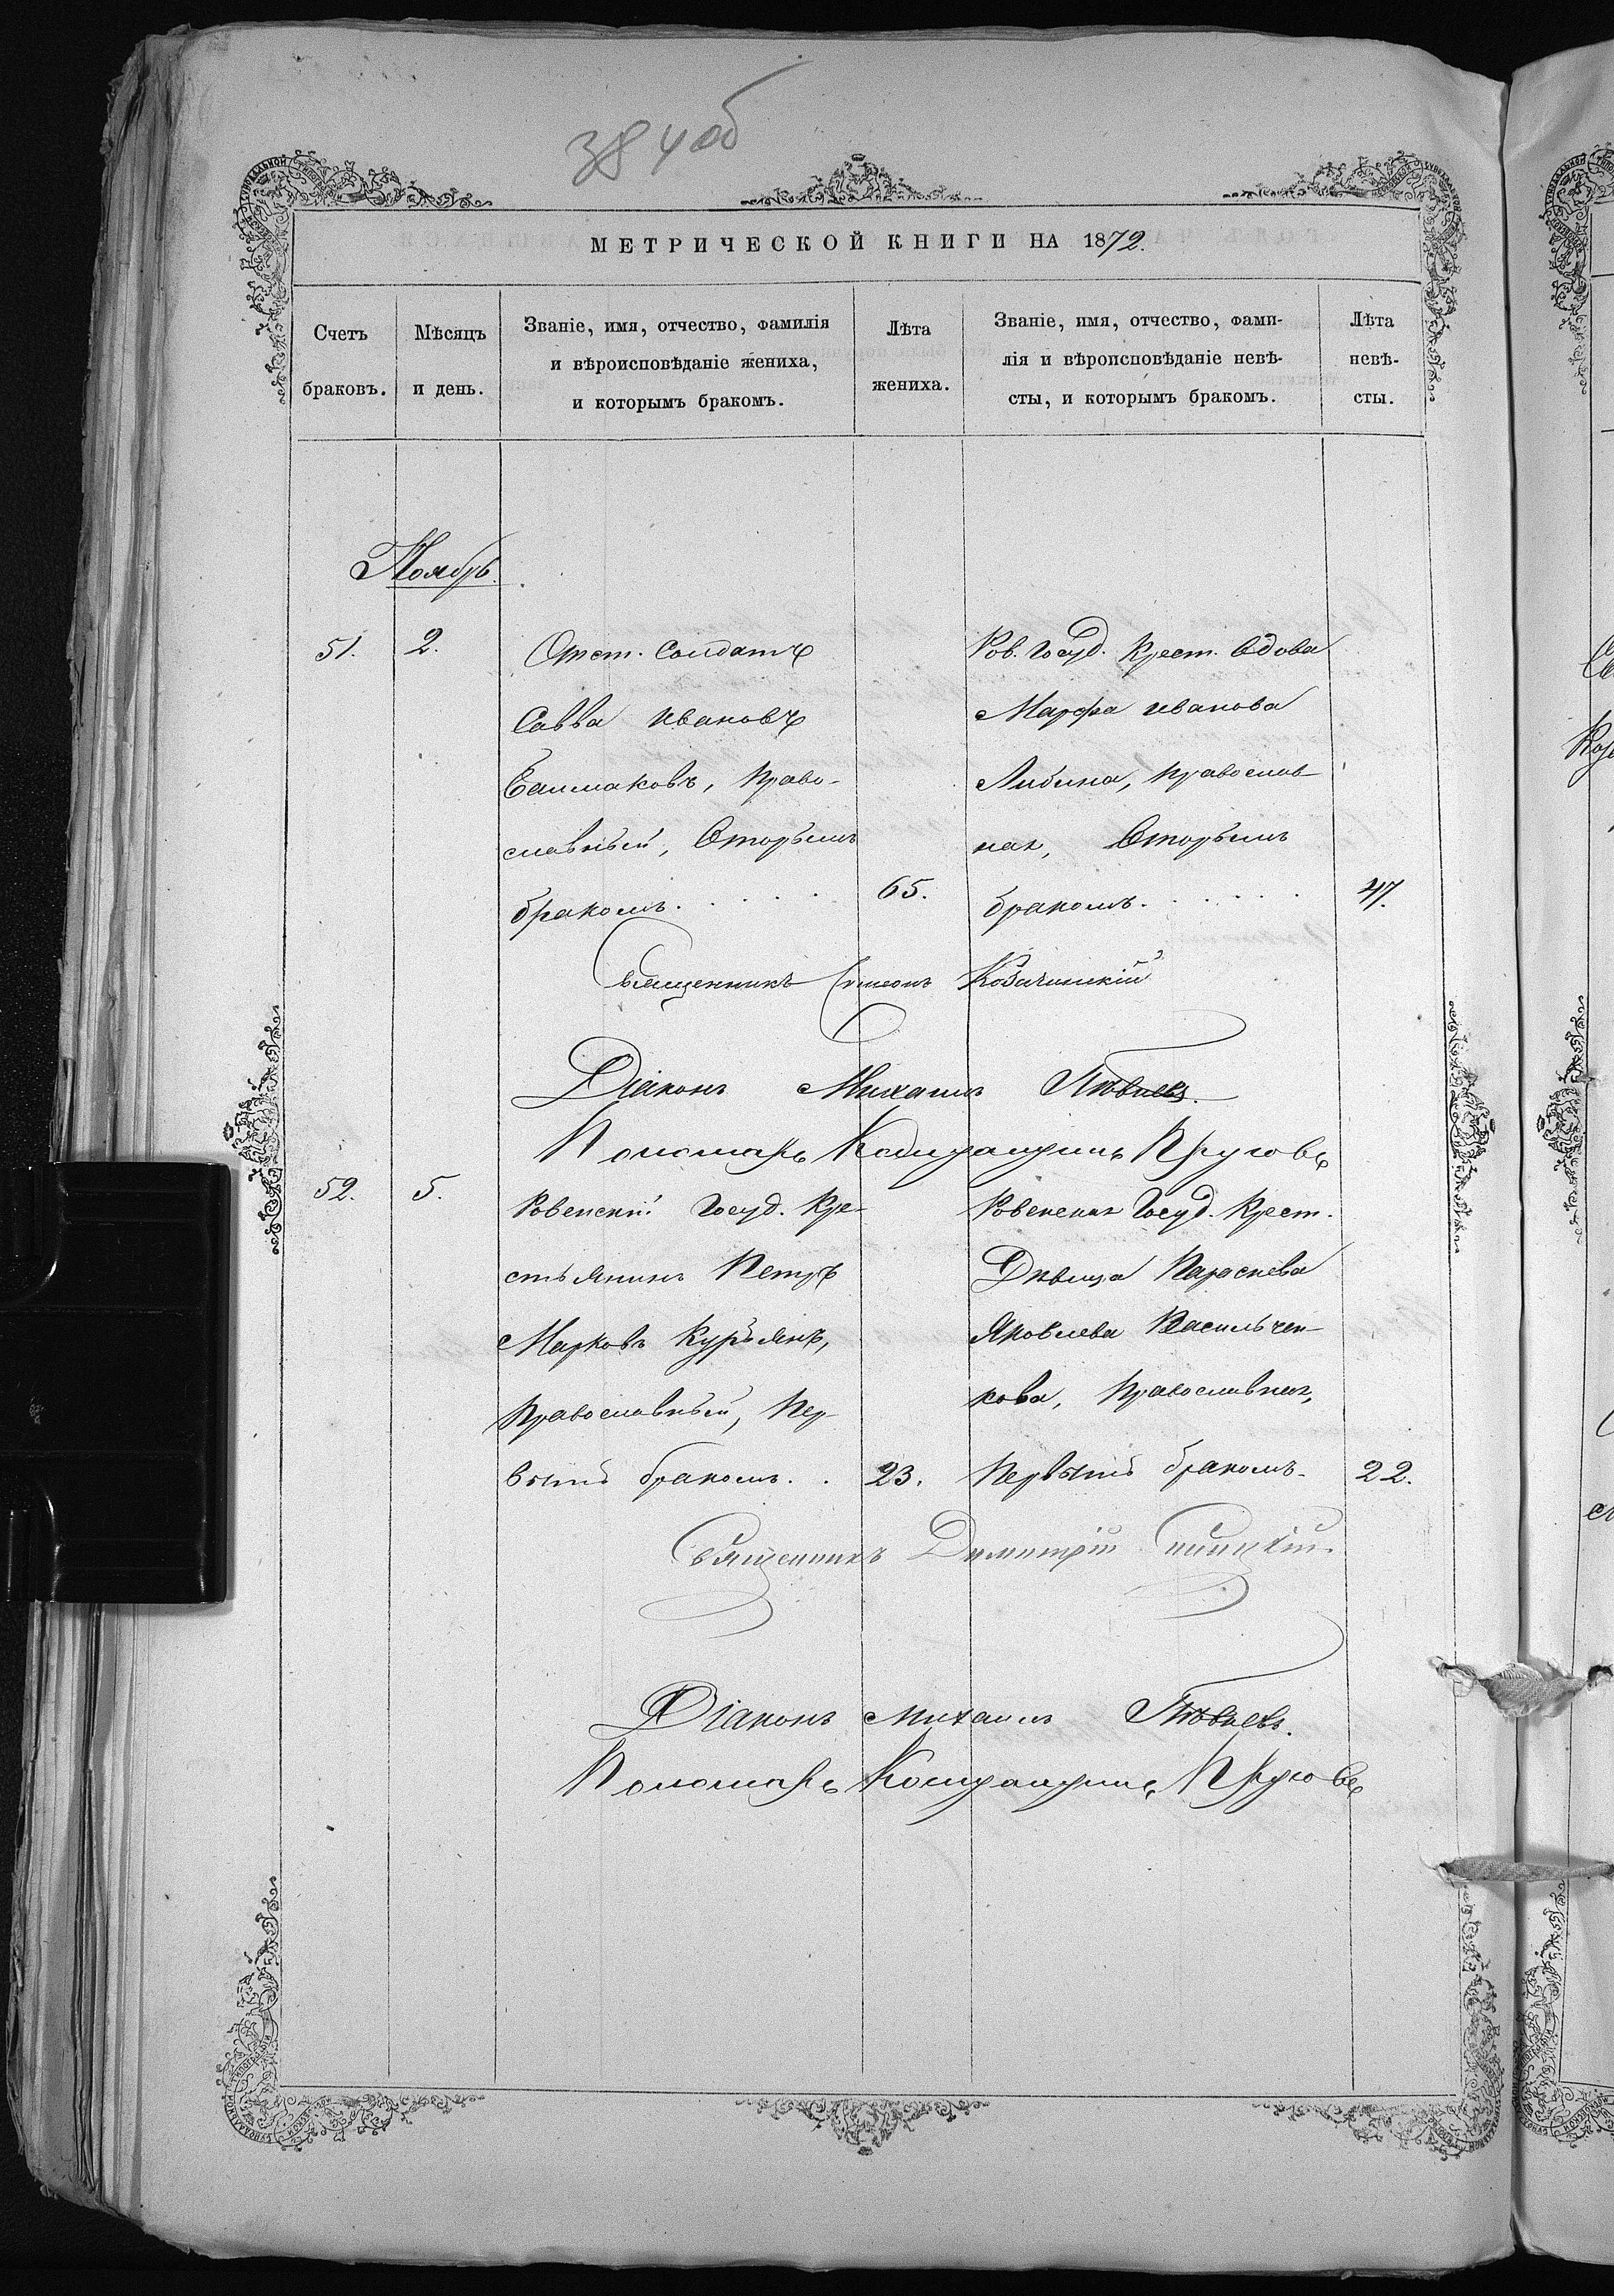 384об
МЕТРИЧЕСКОЙ КНИГИ НА 1872.
Счетъ
браковъ.
Мѣсяцъ
и день.
Званіе, имя, отчество, фамилія
и вѣроисповѣданіе жениха,
и которымъ бракомъ.
Лѣта
жениха.
Званіе, имя, отчество, фами-
лія и вѣроисповѣданіе невѣ-
сты, и которымъ бракомъ.
Лѣта
невѣ-
сты.
Ноябрь.
51.
2.
Отст. Солдатъ
Савва Ивановъ
Башмаковъ, Право-
славный, Вторымъ
бракомъ.
65.
Ров. Госуд. Крест. Вдова
Марфа Иванова
Либина, Православ-
ная, Вторымъ
бракомъ.
47.
Священникъ Симеонъ
Діаконъ Михаилъ
Пономарь
52.
5.
Ровенскій Госуд. Кре-
стьянинъ Петръ
Марковъ Курьянъ,
Православный, Пер-
вымъ бракомъ.
23.
Ровенская Госуд. Крест.
Дѣвица Параскева
Яковлева Васильчен-
кова, Православная,
Первымъ бракомъ.
22.
Священникъ Димитрій
Діаконъ Михаилъ
Пономарь